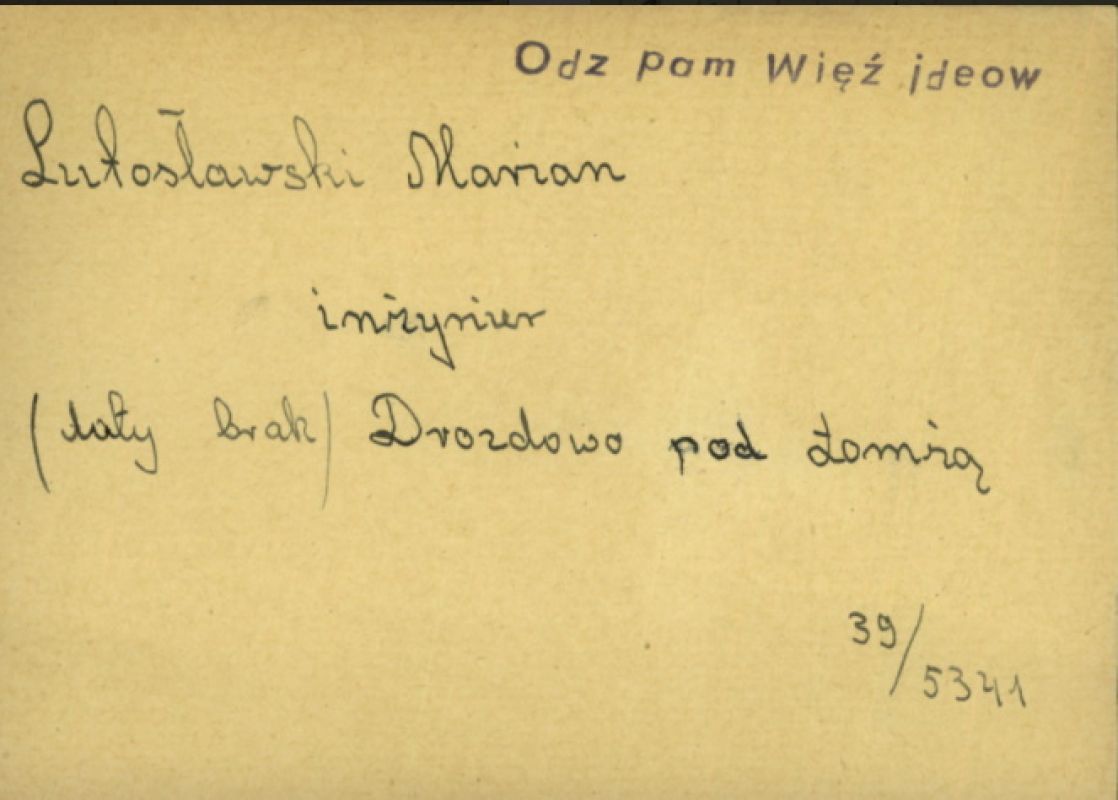 Odz pam Więź jdeow
Lutosławski Marian
inżynier
(daty brak) Drozdowo pod Łomżą
39/5341